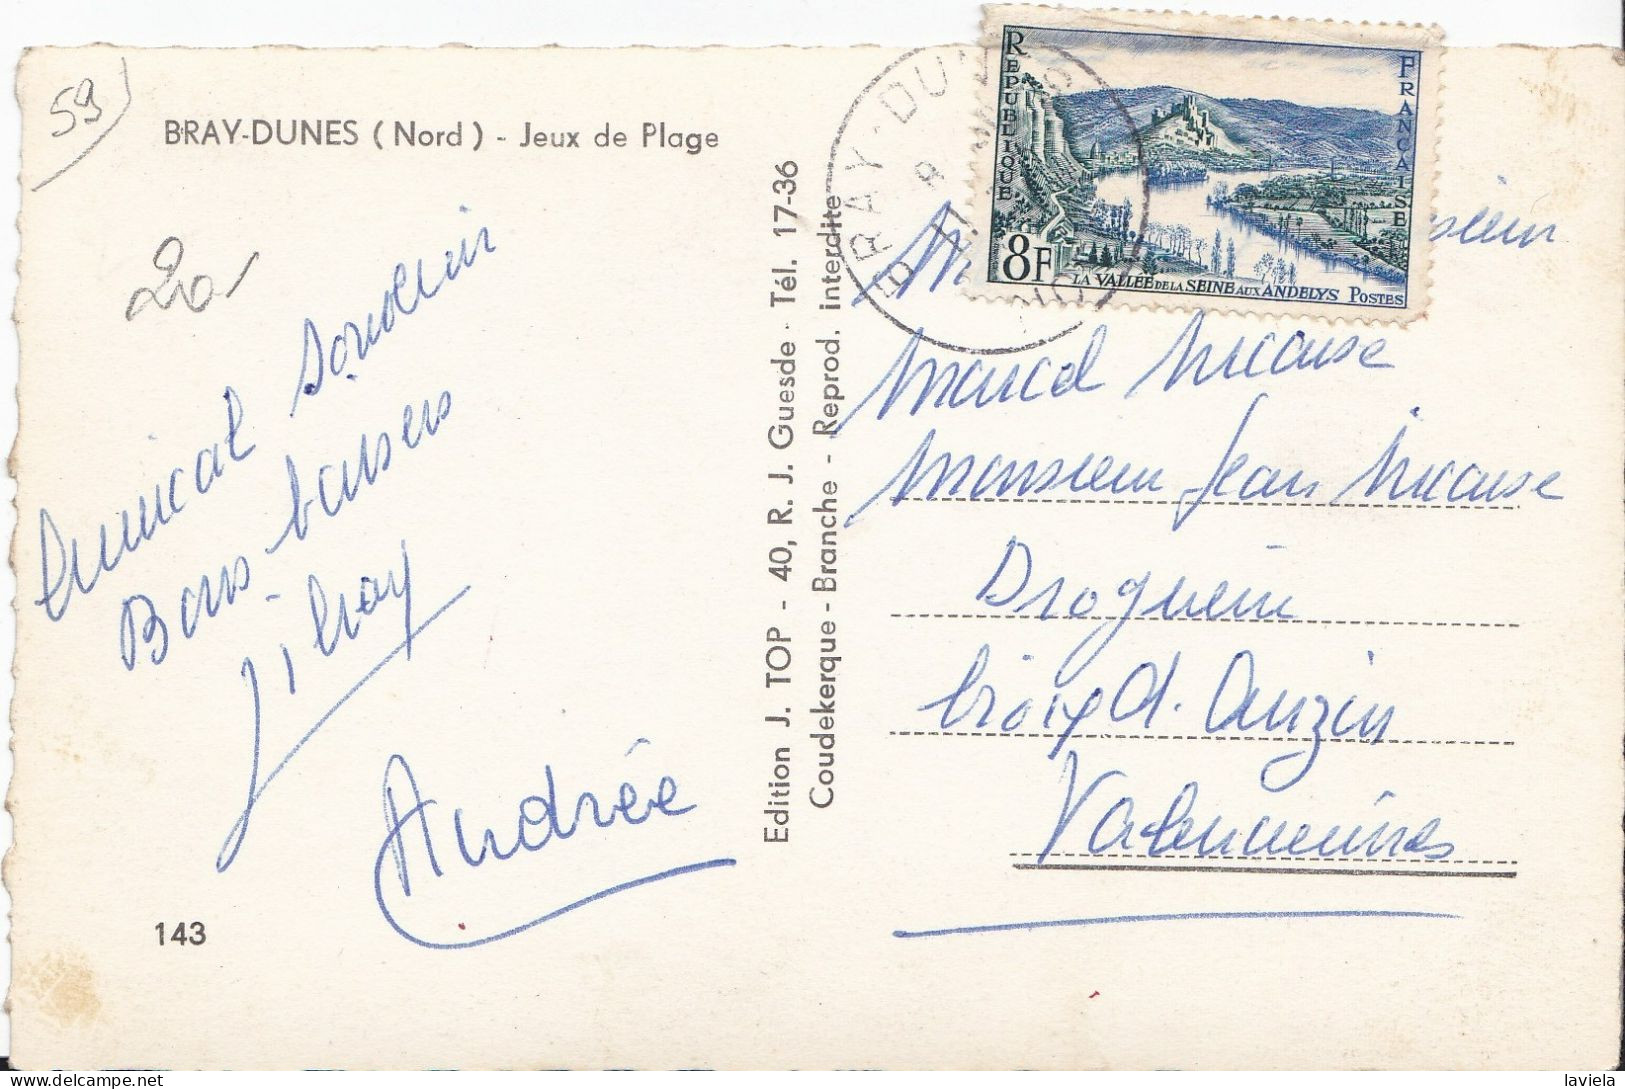 59
BRAY-DUNES (Nord) - Jeux de Plage
20
Amical souvenir
Bons baisers
Andrée
143
Edition J. TOP - 40, R. J. Guesde - Tél. 17-36
Coudekerque - Branche - Reprod. interdite
BRAY-DUNES
NORD
REPUBLIQUE
FRANÇAISE
8F
LA VALLÉE DE LA SEINE AUX ANDELYS POSTES
Marcel Nicaise
Monsieur Jean Nicaise
Droguerie
Croix d'Anzin
Valenciennes
laviela